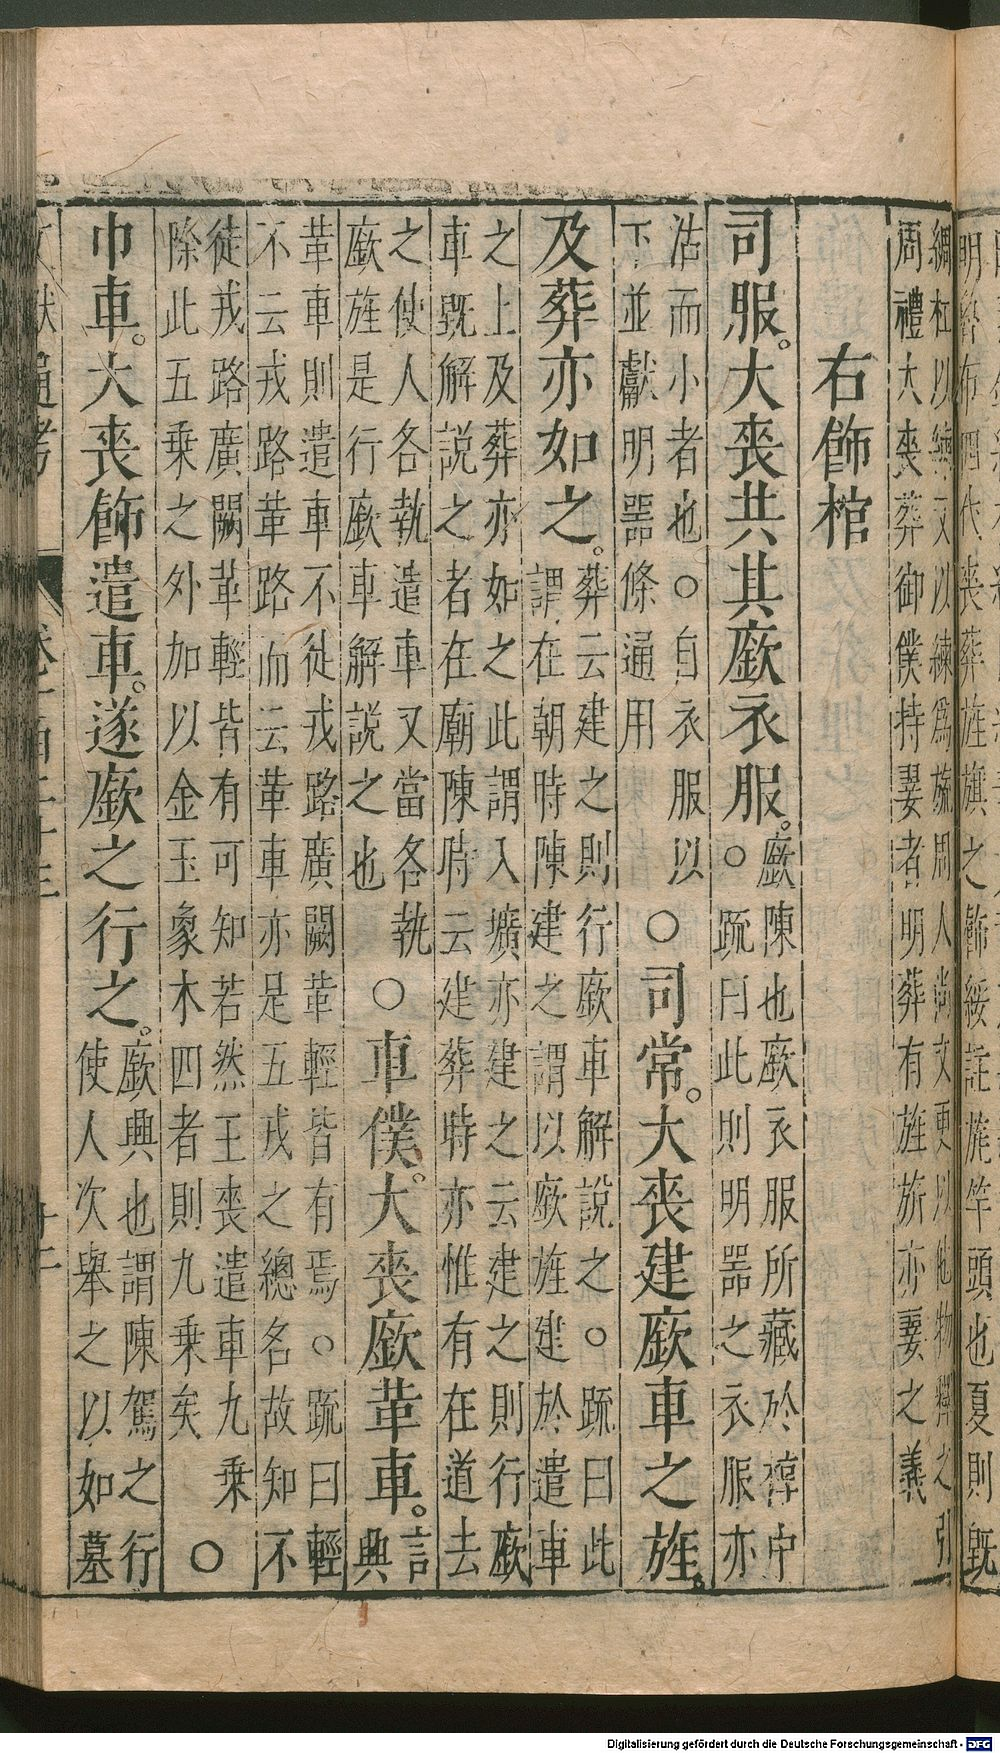 綢杠以 文以練為旒周人尚文更以他物 之
周禮大喪葬御僕持翣者明葬有旌旂亦翣之義
右飾棺
司服。大喪共其廞衣服。廞陳也廞衣服所藏於椁中
○疏曰此則明器之衣服亦
沽而小者也○自衣服以
下並獻明器條通用○司常。大喪建廞車之旌。
及葬亦如之。葬云建之則行廞車解說之○疏曰此
謂在朝時陳建之謂以廞旌建於遣車
之上及葬亦如之此謂入壙亦建之云建之則行廞
車既解說之者在廟陳時云建葬時亦惟有在道去
之使人各執遣車又當各執
廞旌是行廞車解說之也○車僕。大喪廞革車。言
興
革車則遣車不徒戎路廣闕革輕皆有焉○疏曰輕
不云戎路革路而云革車亦是五戎之總名故知不
徒戎路廣闕革輕皆有可知若然王喪遣車九乘
除此五乘之外加以金玉象木四者則九乘矣○
巾車。大喪飾遣車。遂廞之行之。廞興也謂陳駕之行
使人次舉之以如墓
文獻通考
Digitalisierung gefördert durch die Deutsche Forschungsgemeinschaft - DFG